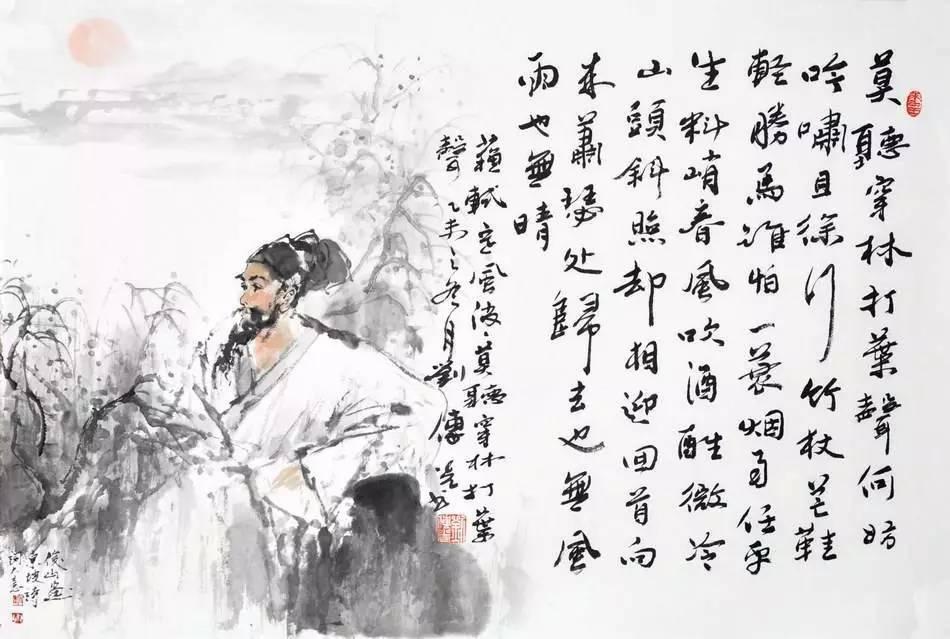 莫聽穿林打葉聲何妨
吟嘯且徐行竹杖芒鞋
輕勝馬誰怕一蓑烟雨任平
生料峭春風吹酒醒微冷
山頭斜照却相迎回首向
来蕭瑟处歸去也無風
雨也無晴
蘇軾定風波莫聽穿林打葉
聲乙未之冬月劉傳书
俊山画
東坡詩